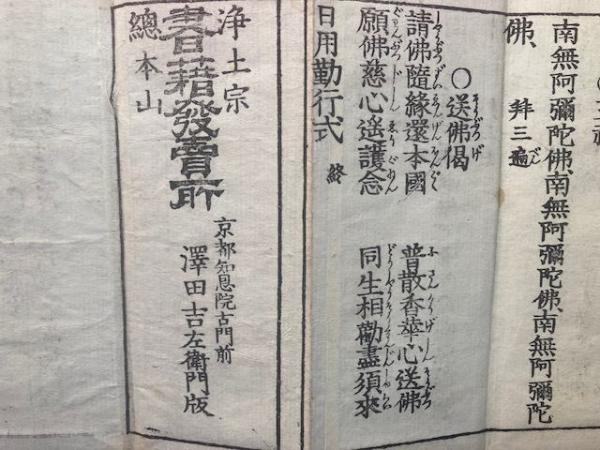 南無阿彌陀佛、南無阿彌陀佛、南無阿彌陀
佛、 拜三遍
○送佛偈
請佛隨緣還本國 普散香華心送佛
願佛慈心遥護念 同生相勸盡須來
日用勤行式 終
浄土宗
總本山
書籍發賣所
京都知恩院古門前
澤田吉左衞門版